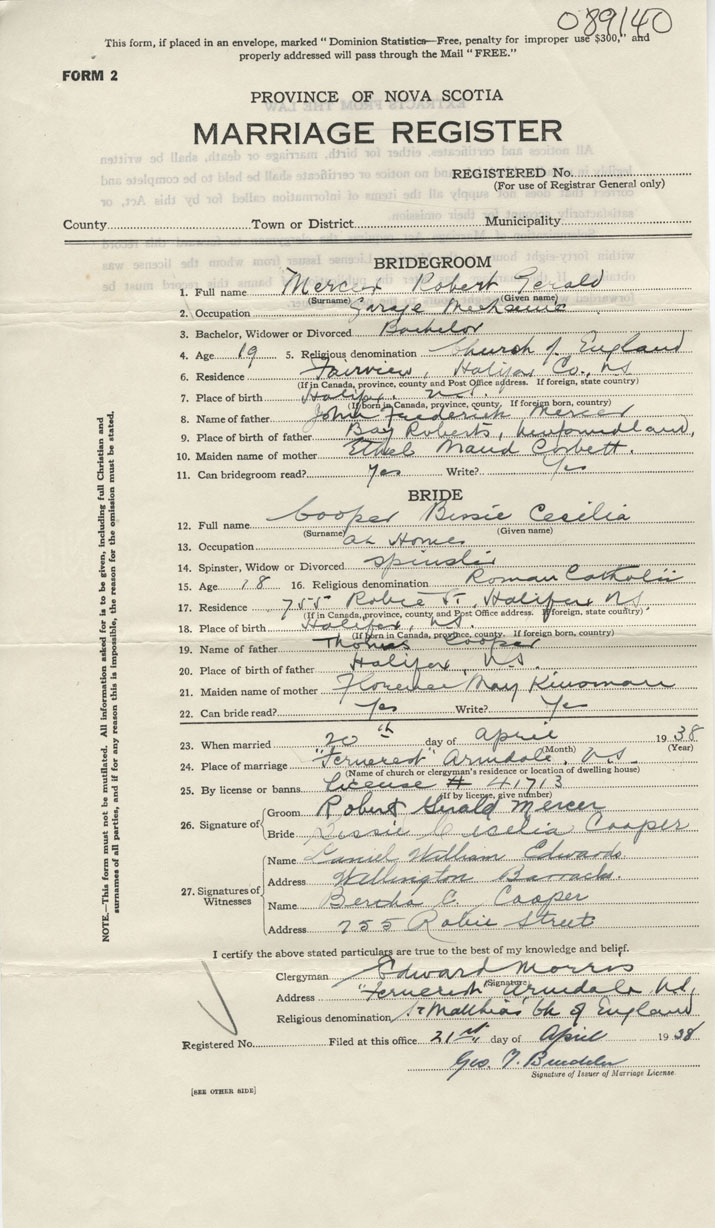 089140
This form, if placed in an envelope, marked "Dominion Statistics—Free, penalty for improper use $300," and
properly addressed will pass through the Mail "FREE."
FORM 2
PROVINCE OF NOVA SCOTIA
MARRIAGE REGISTER
REGISTERED No.
(For use of Registrar General only)
County Town or District Municipality
BRIDEGROOM
1. Full name Mercer Robert Gerald
(Surname) (Given name)
2. Occupation Garage Mechanic
3. Bachelor, Widower or Divorced Bachelor
4. Age 19 5. Religious denomination Church of England
6. Residence Fairview, Halifax Co., NS
(If in Canada, province, county and Post Office address. If foreign, state country)
7. Place of birth Halifax. N.S.
(If born in Canada, province, county. If foreign born, country)
8. Name of father John Frederick Mercer
9. Place of birth of father Bay Roberts, Newfoundland,
10. Maiden name of mother Ethel Maud Corbett.
11. Can bridegroom read? Yes Write? Yes
BRIDE
12. Full name Cooper Bessie Cecilia
(Surname) (Given name)
13. Occupation at Home
14. Spinster, Widow or Divorced spinster
15. Age 18 16. Religious denomination Roman Catholic
17. Residence 755 Robie St. Halifax NS.
(If in Canada, province, county and Post Office address. If foreign, state country)
18. Place of birth Halifax, N.S.
(If born in Canada, province, county. If foreign born, country)
19. Name of father Thomas Cooper
20. Place of birth of father Halifax, N.S.
21. Maiden name of mother Florence May Kinsman
22. Can bride read? Yes Write? Yes
23. When married 20th day of April 1938
(Month) (Year)
24. Place of marriage "Ferncrest" Armdale, N.S.
(Name of church or clergyman's residence or location of dwelling house)
25. By license or banns License # 41713
(If by license, give number)
26. Signature of Groom Robert Gerald Mercer
Bride Bessie Cecelia Cooper
27. Signatures of Witnesses
Name Daniel William Edwards
Address Wellington Barracks.
Name Bertha C. Cooper
Address 755 Robie Street
I certify the above stated particulars are true to the best of my knowledge and belief.
Clergyman Edward Morris
(Signature)
Address "Ferncrest" Armdale N.S.
Religious denomination St Matthias' Ch of England
Registered No. Filed at this office 21st day of April 1938
Geo. T.
Signature of Issuer of Marriage License.
[SEE OTHER SIDE]
NOTE.—This form must not be mutilated. All information asked for is to be given, including full Christian and
surnames of all parties, and if for any reason this is impossible, the reason for the omission must be stated.